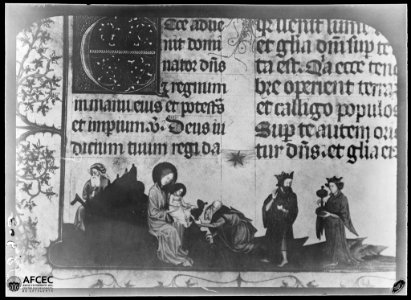 Ecce adve
nit domi
nator dn̄s
et regnum
in manu eius et potestas
et imperium. v̄. Deus iu
dicium tuum regi da
et glīa dn̄i sup te
ta est. Quia ecce tene
bre operient terram
et caligo populos
Sup te autem ori
tur dn̄s. et glīa ei
AFCEC